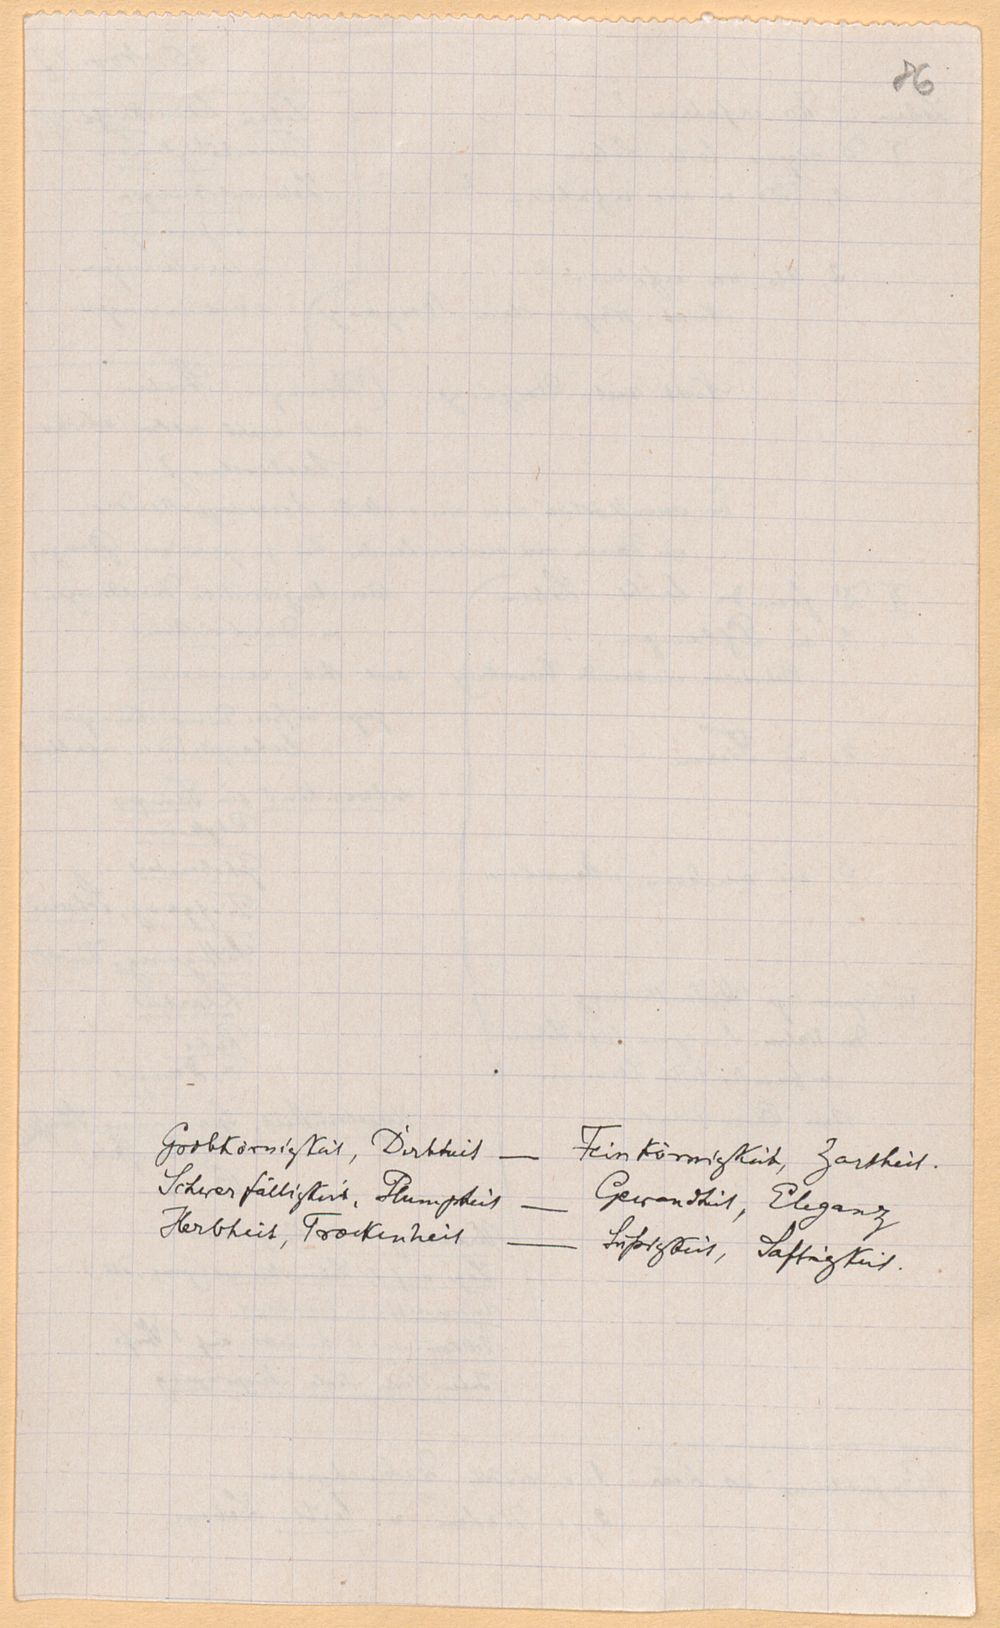 86
Grobkörnigkeit, Derbheit — Feinkörnigkeit, Zartheit.
Schwerfälligkeit, Plumpheit — Gewandtheit, Eleganz
Herbheit, Trockenheit — Süßigkeit, Saftigkeit.